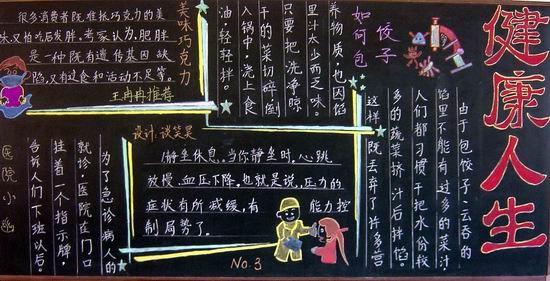 健康人生
如何包
饺子
由于包饺子、云吞的
馅里不能有过多的菜汁,
人们都习惯于把水份较
多的蔬菜挤汁后拌馅。
这样既丢弃了许多营
养物质,也因馅
里汁太少而乏味。
只要把洗净晾
干的菜切碎倒
入锅中,浇上食
油轻轻拌。
美味巧克力
很多消费者既难抵巧克力的美
味又怕吃后发胖。专家认为,肥胖
是一种既有遗传基因缺
陷,又有过食和活动不足等。
王冉冉推荐
设计:谈笑是
静坐休息,当你静坐时,心跳
放慢、血压下降,也就是说,压力的
症状有所减缓,有 能力控
制局势了。
No.3
为了急诊病人的
就诊,医院在门口
挂着一个指示牌,
告诉人们下班以后。
医院小幽